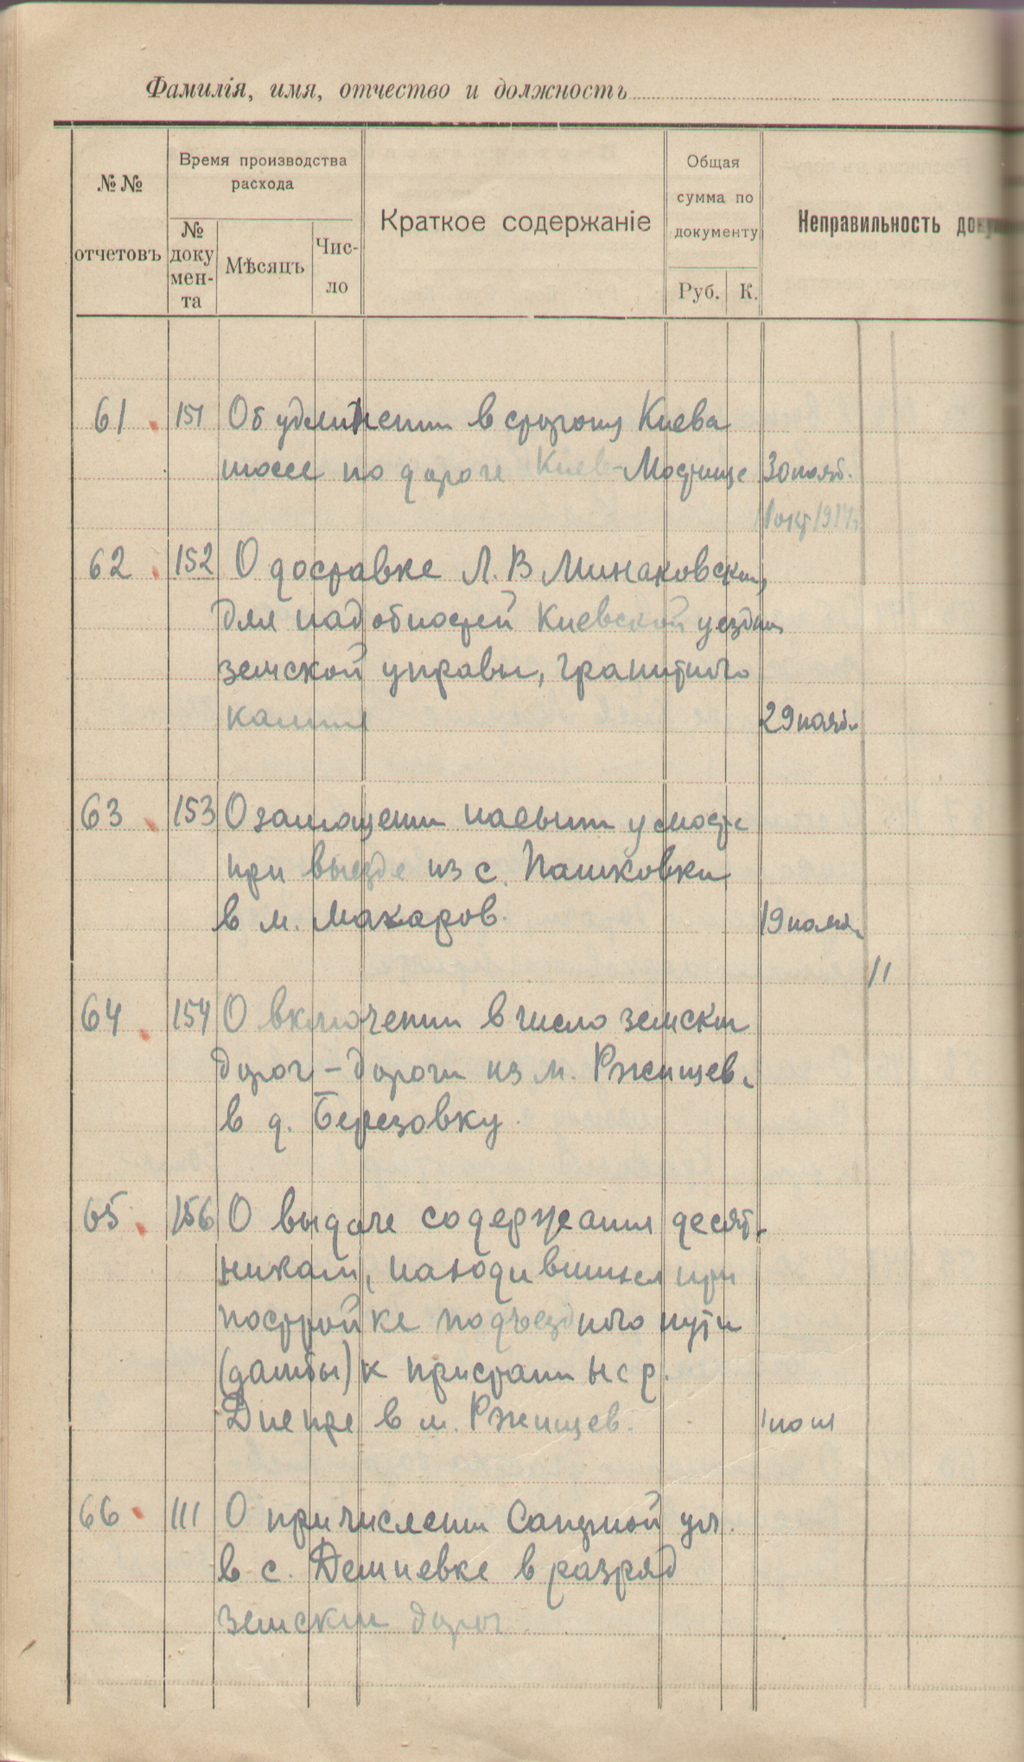 Фамилія, имя, отчество и должность
№№ отчетовъ
Время производства расхода
№ доку мен- та
Мѣсяцъ
Чис- ло
Краткое содержаніе
Общая сумма по документу
Руб.
К.
Неправильность
61 151 Об удлинении в сторону Киева
шоссе по дороге Киев-Мостище 30 нояб.
62 152 О доставке Л. В. Минаковским,
для надобностей Киевской уездн
земской управы, гранитного
камня 29 нояб.
63 153 О замощении насыпи у моста
при выезде из с. Пашковки
в м. Макаров. 19
11
64 154 О включении в число земских
дорог - дороги из м. Ржищев
в д. Березовку.
65 156 О выдаче содержания десят-
никам, находившимся при
постройке подъездного пути
(дамбы) к пристани на р.
Днепре в м. Ржищев. 1
66 111 О причислении Саперной ул.
в с. Демиевке в разряд
земских дорог